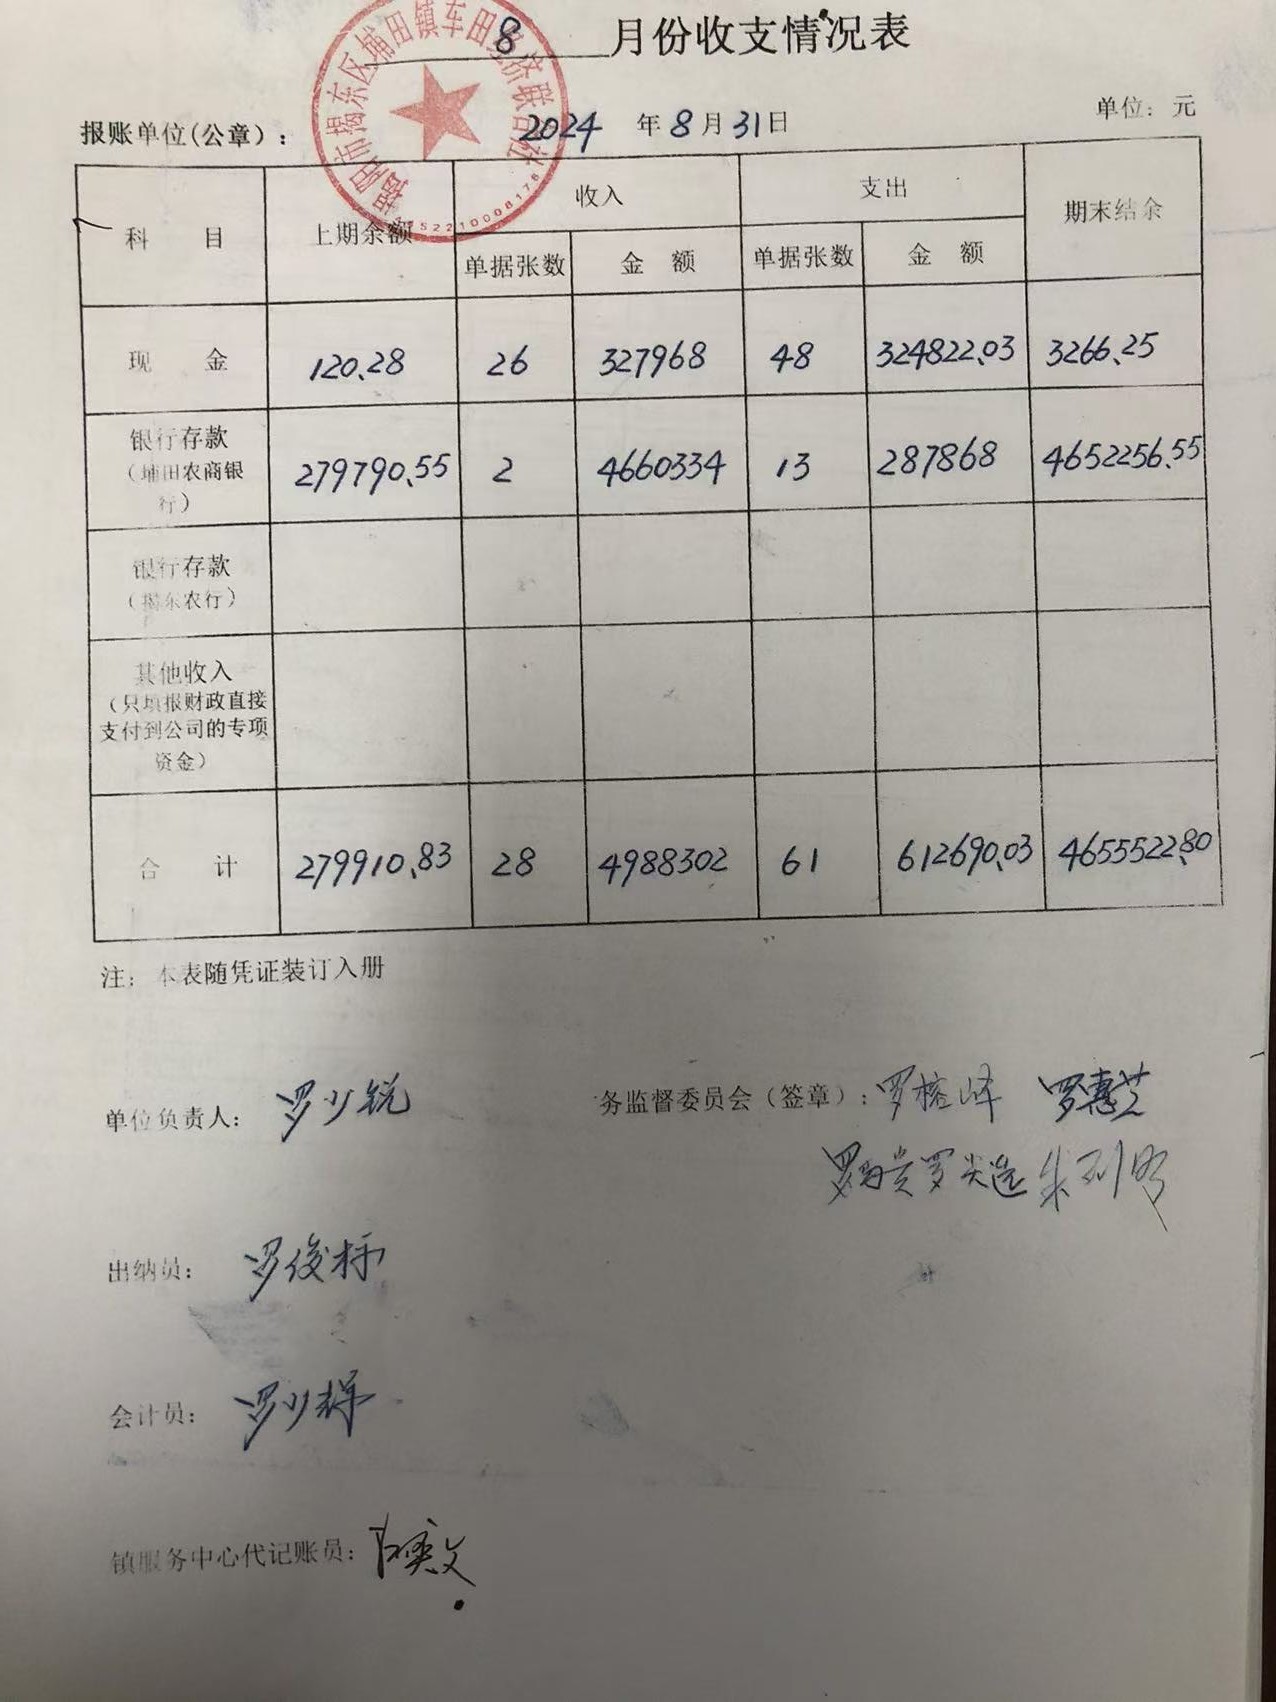 8 月份收支情况表
揭阳市揭东区埔田镇车田经济联合社
报账单位(公章)： 2024 年 8 月 31 日 单位：元
科 目 上期余额 收入 支出 期末结余
单据张数 金 额 单据张数 金 额
现 金 120.28 26 327968 48 324822.03 3266.25
银行存款
（埔田农商银
行） 279790.55 2 4660334 13 287868 4652256.55
银行存款
（揭东农行）
其他收入
（只填报财政直接
支付到公司的专项
资金）
合 计 279910.83 28 4988302 61 612690.03 4655522.80
注：本表随凭证装订入册
单位负责人：罗少锐 务监督委员会（签章）：罗榕 罗惠芝
罗 贵 罗 朱
出纳员：罗俊标
会计员：罗少
镇服务中心代记账员：